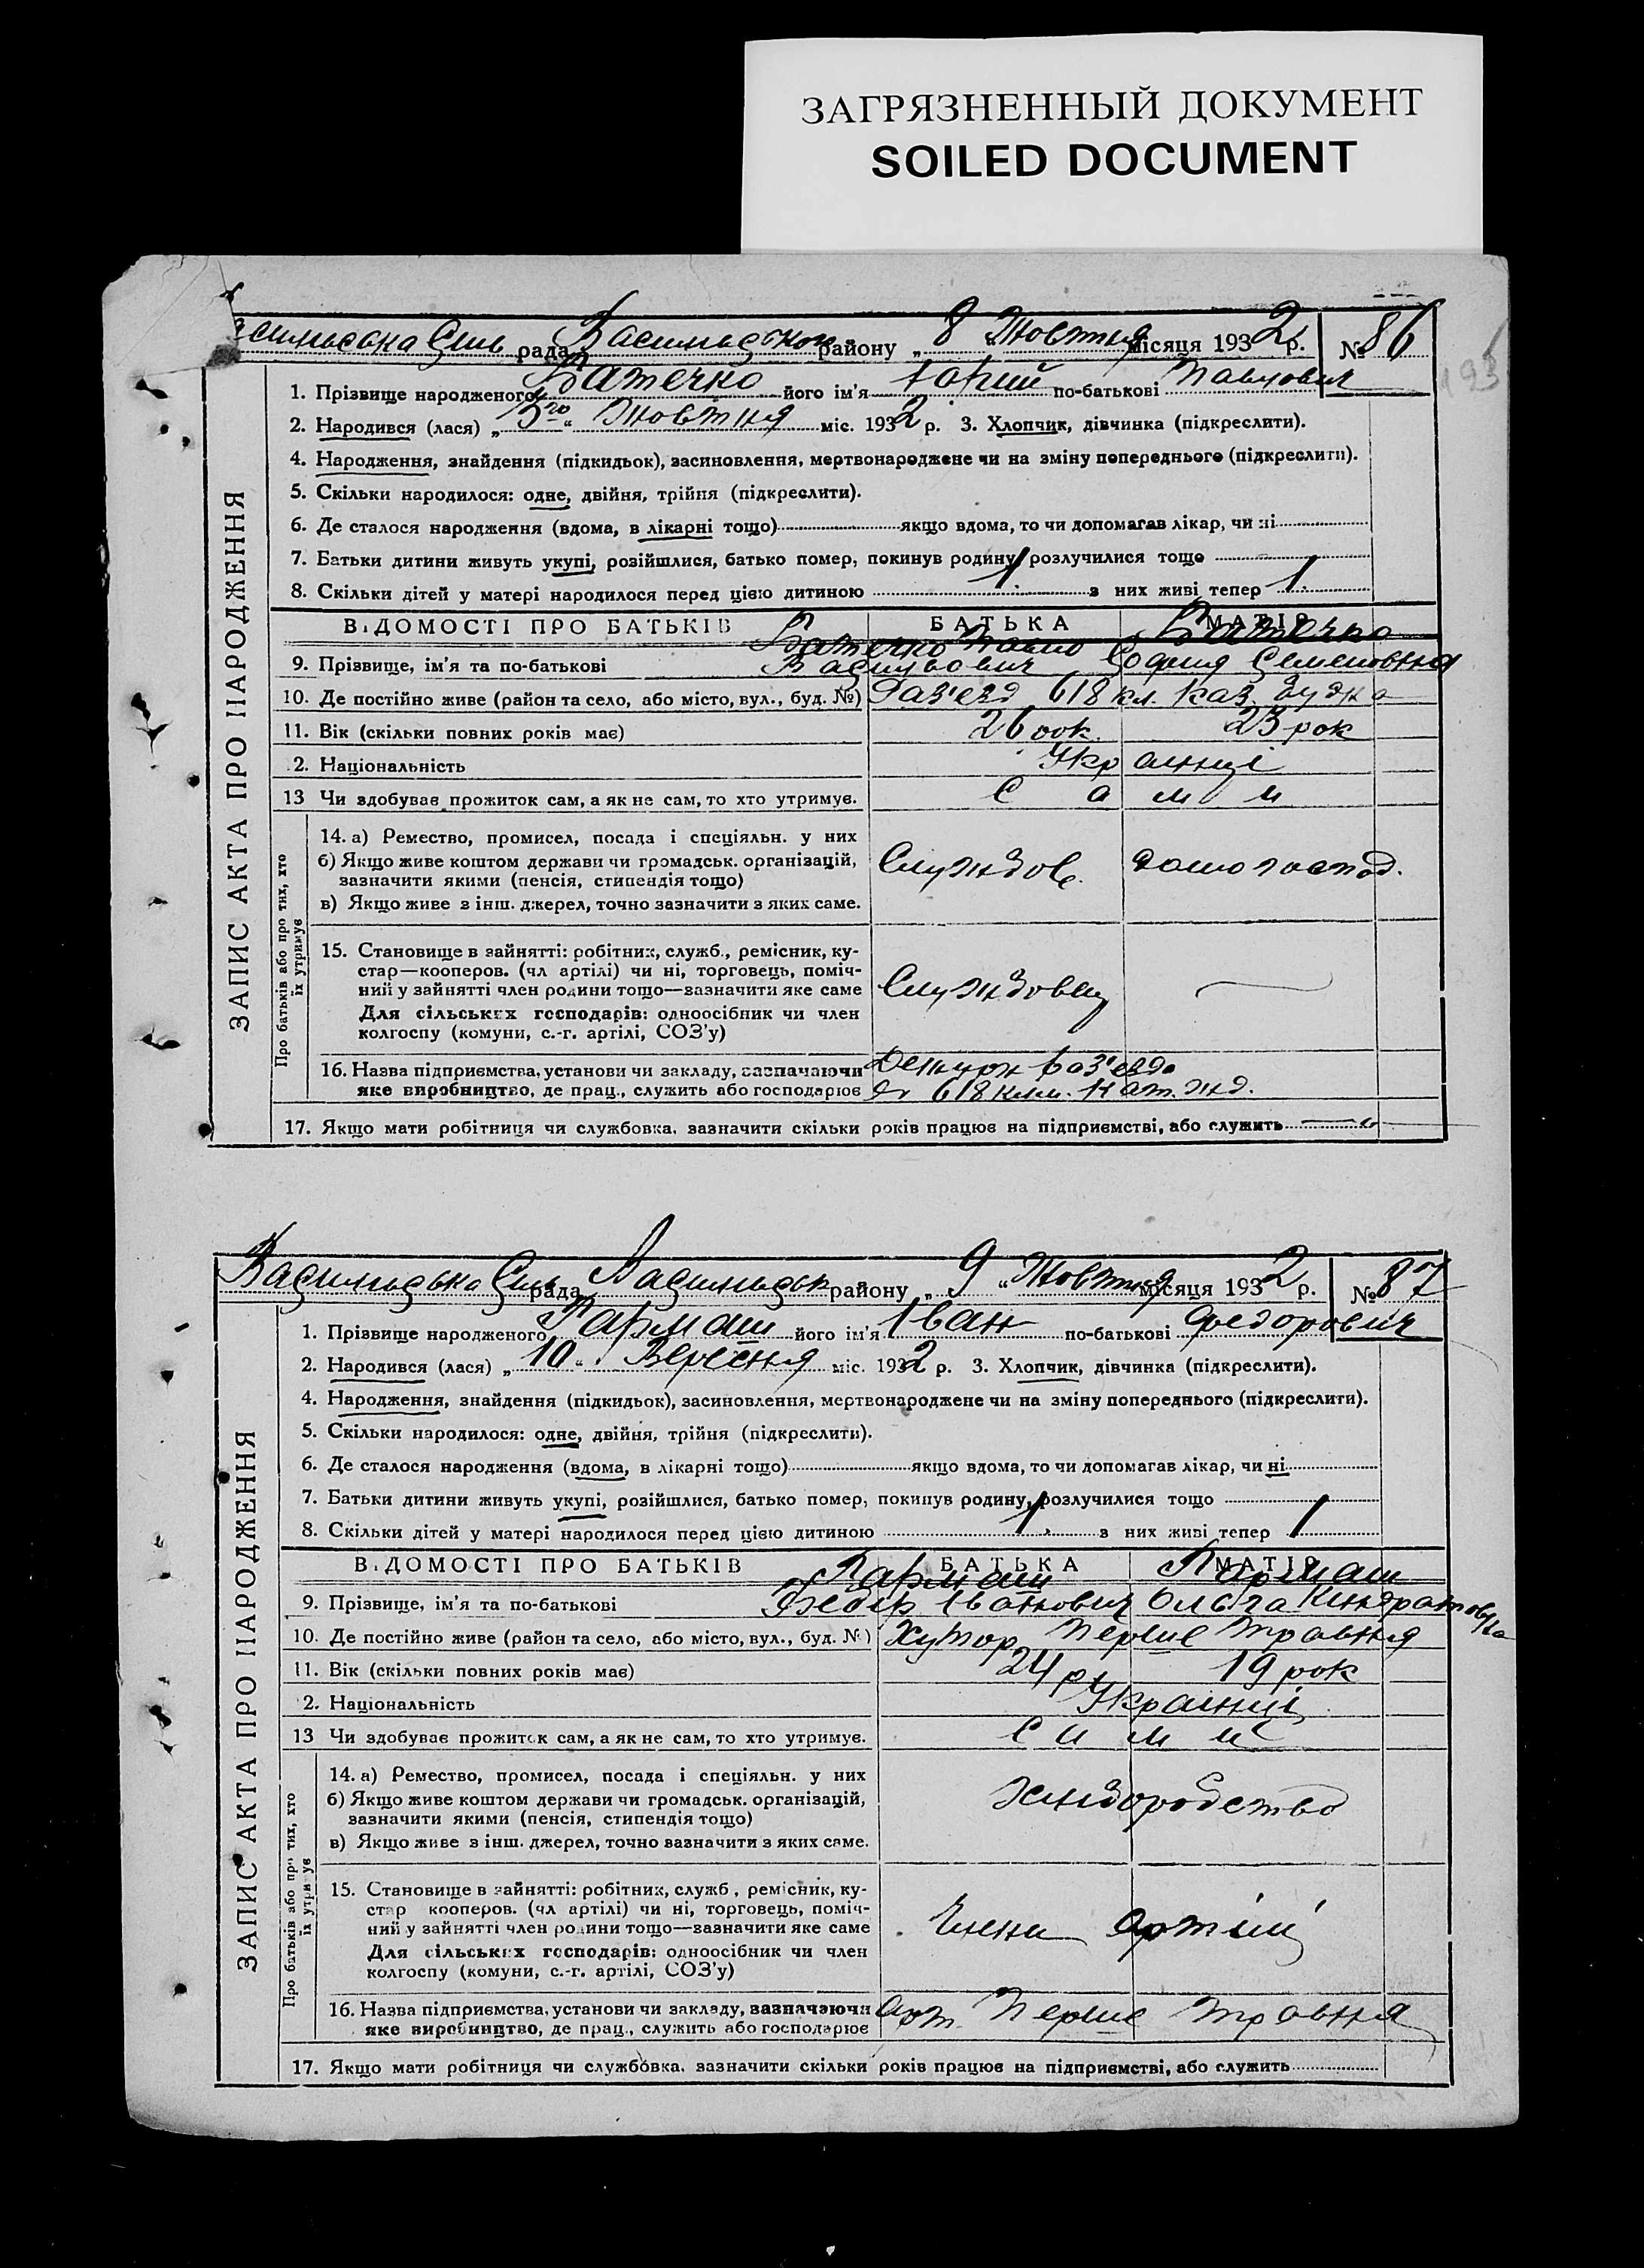 ЗАГРЯЗНЕННЫЙ ДОКУМЕНТ
SOILED DOCUMENT
сильвська Сіль рада Васильвської району „ 8 Жовтня місяця 1932 р. № 86
1. Прізвище народженого Батечко його ім'я Юрий по-батькові Павлович
2. Народився (лася) „ 5го “ Жовтня міс. 1932 р. 3. Хлопчик, дівчинка (підкреслити).
4. Народження, знайдення (підкидьок), засиновлення, мертвонароджене чи на зміну попереднього (підкреслити).
5. Скільки народилося: одне, двійня, трійня (підкреслити).
6. Де сталося народження (вдома, в лікарні тощо) якщо вдома, то чи допомагав лікар, чи ні
7. Батьки дитини живуть укупі, розійшлися, батько помер, покинув родину, розлучилися тощо
8. Скільки дітей у матері народилося перед цією дитиною 1 з них живі тепер 1
ЗАПИС АКТА ПРО НАРОДЖЕННЯ
ВІДОМОСТІ ПРО БАТЬКІВ БАТЬКА МАТІР
Батечко Павло Батечко
9. Прізвище, ім'я та по-батькові Васильович София Семеновна
10. Де постійно живе (район та село, або місто, вул., буд. №) Раз'езд 618 кл. Каз. Будка
11. Вік (скільки повних років має) 26 рок. 23 рок
2. Національність Українці
13 Чи здобував прожиток сам, а як не сам, то хто утримує. Сами
Про батьків або про тих, хто їх утримує
14. а) Ремество, промисел, посада і спеціяльн. у них
б) Якщо живе коштом держави чи громадськ. організацій,
зазначити якими (пенсія, стипендія тощо)
в) Якщо живе з інш. джерел, точно зазначити з яких саме.
Службов. домогоспод.
15. Становище в зайнятті: робітник, служб., ремісник, ку-
стар—кооперов. (чл артілі) чи ні, торговець, поміч-
ний у зайнятті член родини тощо—зазначити яке саме
Для сільських господарів: одноосібник чи член
колгоспу (комуни, с.-г. артілі, СОЗ'у)
Службовец
16. Назва підприємства, установи чи закладу, зазначаючи Дежурн раз'езда
яке виробництво, де прац., служить або господарює 618 клм. Кат. жд.
17. Якщо мати робітниця чи службовка, зазначити скільки років працює на підприємстві, або служить
Васильвська Сіль рада Васильвськ району „ 9 “ Жовтня місяця 1932 р. № 87
1. Прізвище народженого Гармаш його ім'я Іван по-батькові Федорович
2. Народився (лася) „ 10 “ Вересня міс. 1932 р. 3. Хлопчик, дівчинка (підкреслити).
4. Народження, знайдення (підкидьок), засиновлення, мертвонароджене чи на зміну попереднього (підкреслити).
5. Скільки народилося: одне, двійня, трійня (підкреслити).
6. Де сталося народження (вдома, в лікарні тощо) якщо вдома, то чи допомагав лікар, чи ні
7. Батьки дитини живуть укупі, розійшлися, батько помер, покинув родину, розлучилися тощо
8. Скільки дітей у матері народилося перед цією дитиною 1 з них живі тепер 1
ЗАПИС АКТА ПРО НАРОДЖЕННЯ
ВІДОМОСТІ ПРО БАТЬКІВ БАТЬКА МАТІР
Гармаш Гармаш
9. Прізвище, ім'я та по-батькові Федір Іванович Ольга Кіндратовна
10. Де постійно живе (район та село, або місто, вул., буд. №) Хутор Перше Травня
11. Вік (скільки повних років має) 24 р. 19 рок
2. Національність Українці
13 Чи здобував прожиток сам, а як не сам, то хто утримує. Сами
Про батьків або про тих, хто їх утримує
14. а) Ремество, промисел, посада і спеціяльн. у них
б) Якщо живе коштом держави чи громадськ. організацій,
зазначити якими (пенсія, стипендія тощо)
в) Якщо живе з інш. джерел, точно зазначити з яких саме.
Хліборобство
15. Становище в зайнятті: робітник, служб., ремісник, ку-
стар кооперов. (чл артілі) чи ні, торговець, поміч-
ний у зайнятті член родини тощо—зазначити яке саме
Для сільських господарів: одноосібник чи член
колгоспу (комуни, с.-г. артілі, СОЗ'у)
Члени Артілі
16. Назва підприємства, установи чи закладу, зазначаючи
яке виробництво, де прац., служить або господарює Арт. Перше Травня
17. Якщо мати робітниця чи службовка, зазначити скільки років працює на підприємстві, або служить